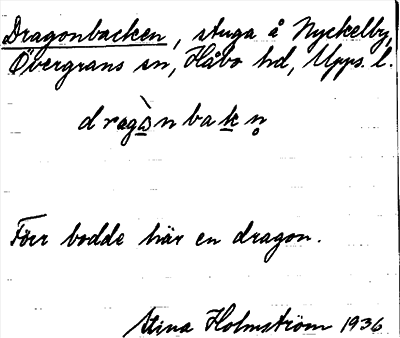 Dragonbacken, stuga å Nyckelby,
Övergrans sn, Håbo hd, Upps. l.
dragὰnbakn̥
Förr bodde här en dragon.
Stina Holmström 1936